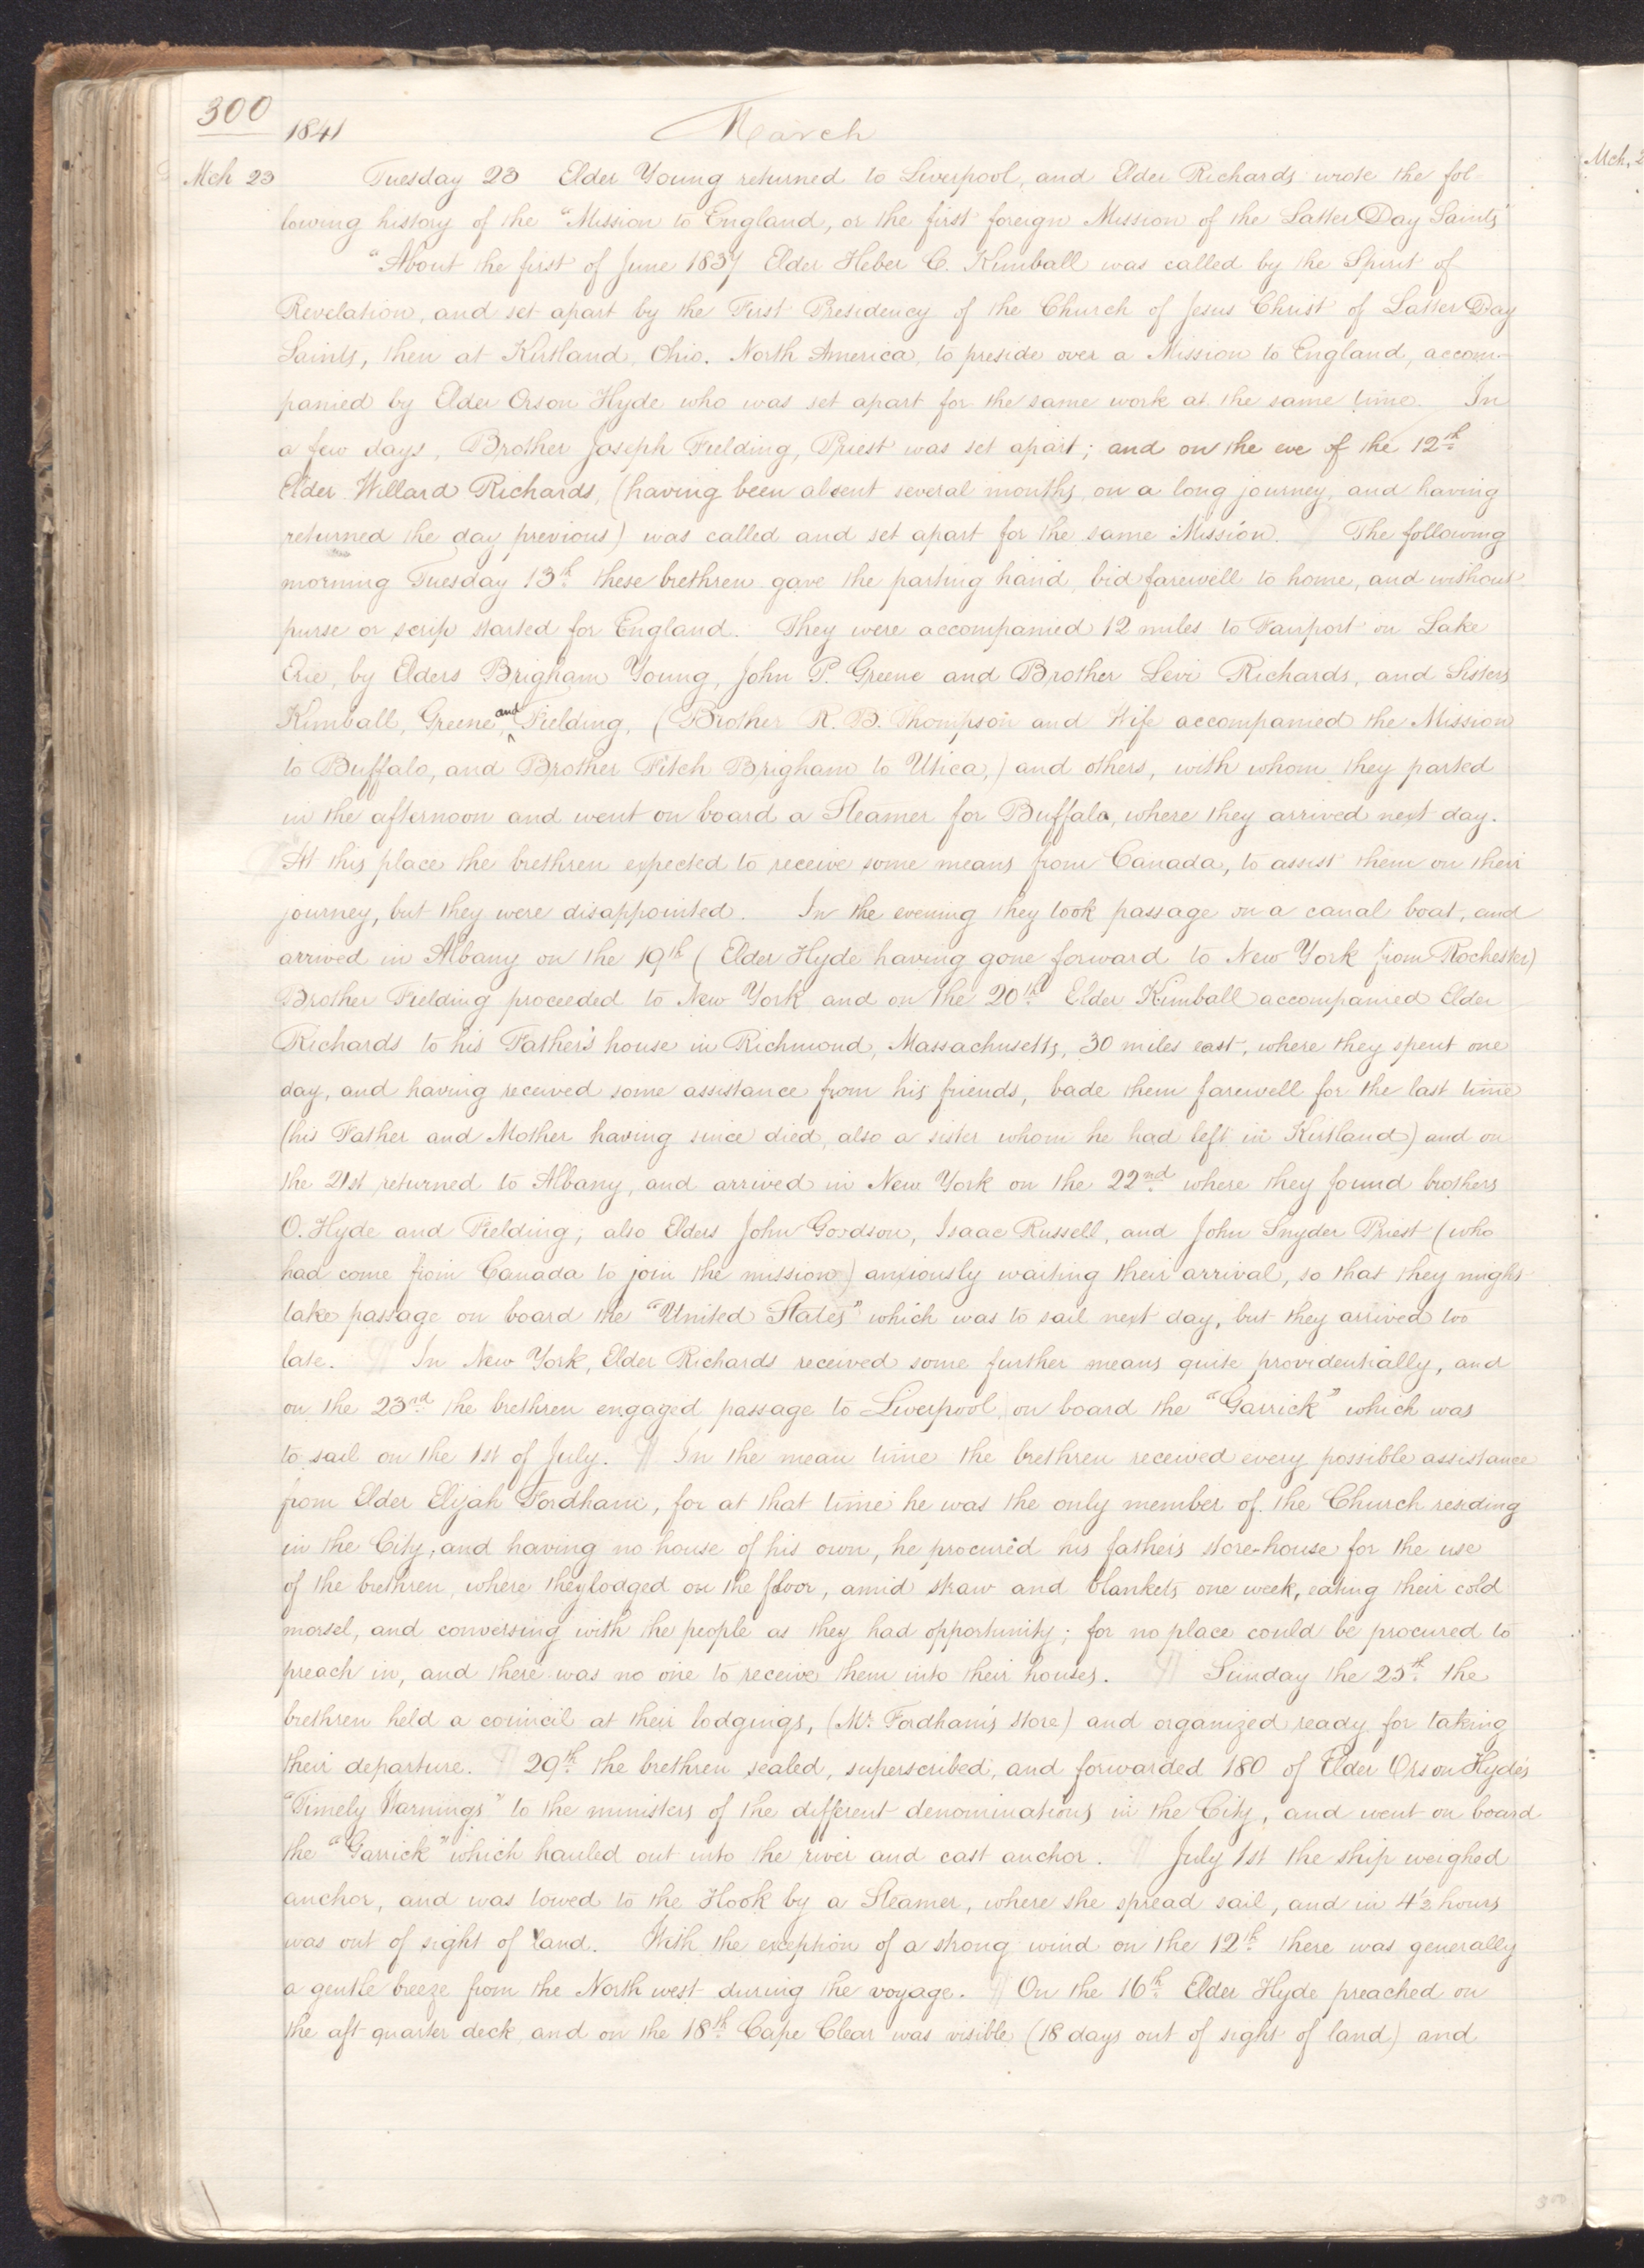 300
1841 March
Mch 23 Tuesday 23 Elder Young returned to Liverpool, and Elder Richards wrote the fol-
lowing history of the "Mission to England, or the first foreign Mission of the Latter Day Saints"
"About the first of June 1837 Elder Heber C. Kimball was called by the Spirit of
Revelation, and set apart by the First Presidency of the Church of Jesus Christ of Latter Day
Saints, then at Kirtland, Ohio. North America, to preside over a Mission to England, accom-
panied by Elder Orson Hyde who was set apart for the same work at the same time. In
a few days, Brother Joseph Fielding, Priest was set apart; and on the eve of the 12th
Elder Willard Richards, (having been absent several months, on a long journey, and having
returned the day previous) was called and set apart for the same Mission. The following
morning Tuesday 13th these brethren gave the parting hand, bid farewell to home, and without
purse or scrip started for England. They were accompanied 12 miles to Fairport on Lake
Erie, by Elders Brigham Young, John P. Greene and Brother Levi Richards, and Sisters
Kimball, Greene, and Fielding, (Brother R. B. Thompson and Wife accompanied the Mission
to Buffalo, and Brother Fitch Brigham to Utica,) and others, with whom they parted
in the afternoon and went on board a Steamer for Buffalo, where they arrived next day.
At this place the brethren expected to receive some means from Canada, to assist them on their
journey, but they were disappointed. In the evening they took passage on a canal boat, and
arrived in Albany on the 19th (Elder Hyde having gone forward to New York from Rochester)
Brother Fielding proceeded to New York and on the 20th Elder Kimball accompanied Elder
Richards to his Father's house in Richmond, Massachusetts, 30 miles east, where they spent one
day, and having received some assistance from his friends, bade them farewell for the last time
(his Father and Mother having since died, also a sister whom he had left in Kirtland) and on
the 21st returned to Albany, and arrived in New York on the 22nd where they found brothers
O. Hyde and Fielding; also Elders John Goodson, Isaac Russell, and John Snyder Priest (who
had come from Canada to join the mission) anxiously waiting their arrival, so that they might
take passage on board the "United States" which was to sail next day, but they arrived too
late. ¶ In New York, Elder Richards received some further means quite providentially, and
on the 23rd the brethren engaged passage to Liverpool, on board the "Garrick" which was
to sail on the 1st of July. ¶ In the mean time the brethren received every possible assistance
from Elder Elijah Fordham, for at that time he was the only member of the Church residing
in the City, and having no house of his own, he procured his father's store-house for the use
of the brethren, where they lodged on the floor, amid straw and blankets one week, eating their cold
morsel, and conversing with the people as they had opportunity; for no place could be procured to
preach in, and there was no one to receive them into their houses. ¶ Sunday the 25th the
brethren held a council at their lodgings, (Mr. Fordham's store) and organized ready for taking
their departure. ¶ 29th the brethren sealed, superscribed, and forwarded 180 of Elder Orson Hyde's
"Timely Warnings" to the ministers of the different denominations in the City, and went on board
the "Garrick" which hauled out into the river and cast anchor. ¶ July 1st the ship weighed
anchor, and was towed to the Hook by a Steamer, where she spread sail, and in 4½ hours
was out of sight of land. With the exception of a strong wind on the 12th there was generally
a gentle breeze from the North west during the voyage. ¶ On the 16th Elder Hyde preached on
the aft quarter deck, and on the 18th Cape Clear was visible (18 days out of sight of land) and
300
Mch, 2